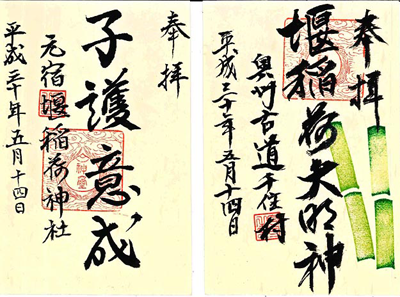 奉拝
堰稲荷大明神
奥州古道千住村
平成三十年五月十四日
奉拝
子護意成
元宿堰稲荷神社
平成三十年五月十四日